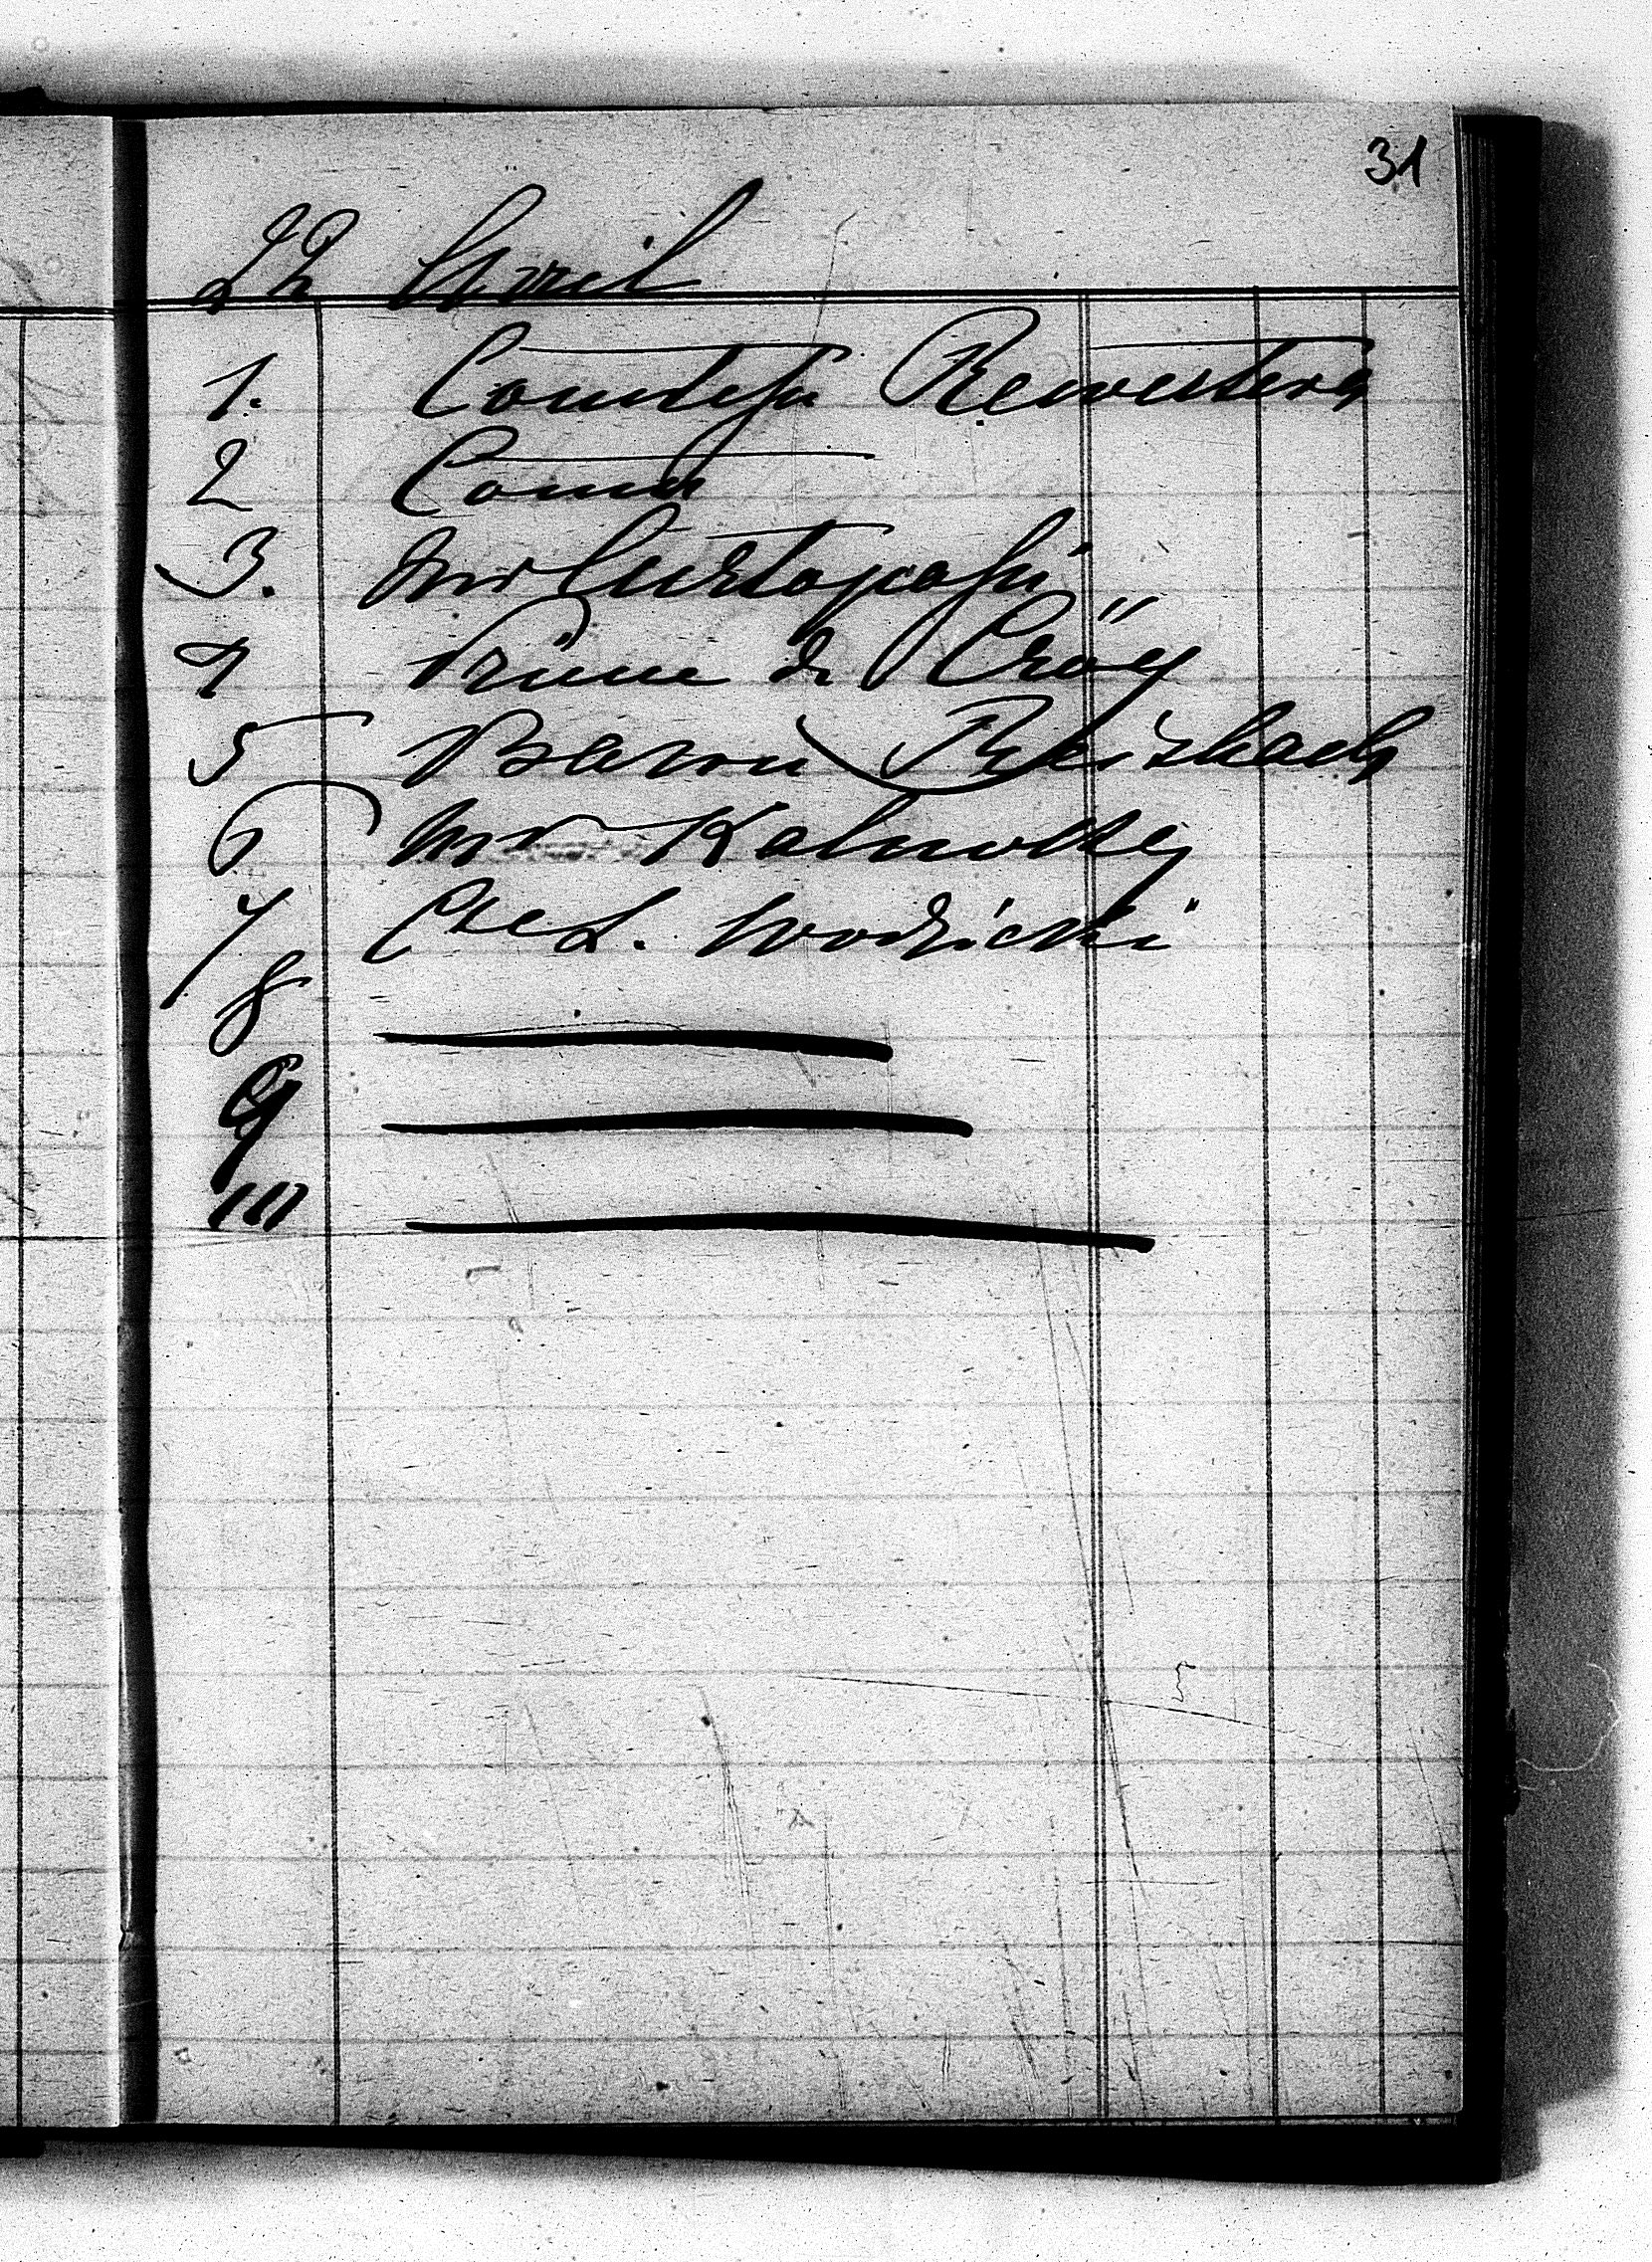 31
22 Avril
1. Comtesse Revertera
2 Comte
3. Mr Curtopassi
4 Prince de Cröy
5 Baron Reischach
6 Mr Kalnoky
7 Cte L. Wodzicki
8
9
10